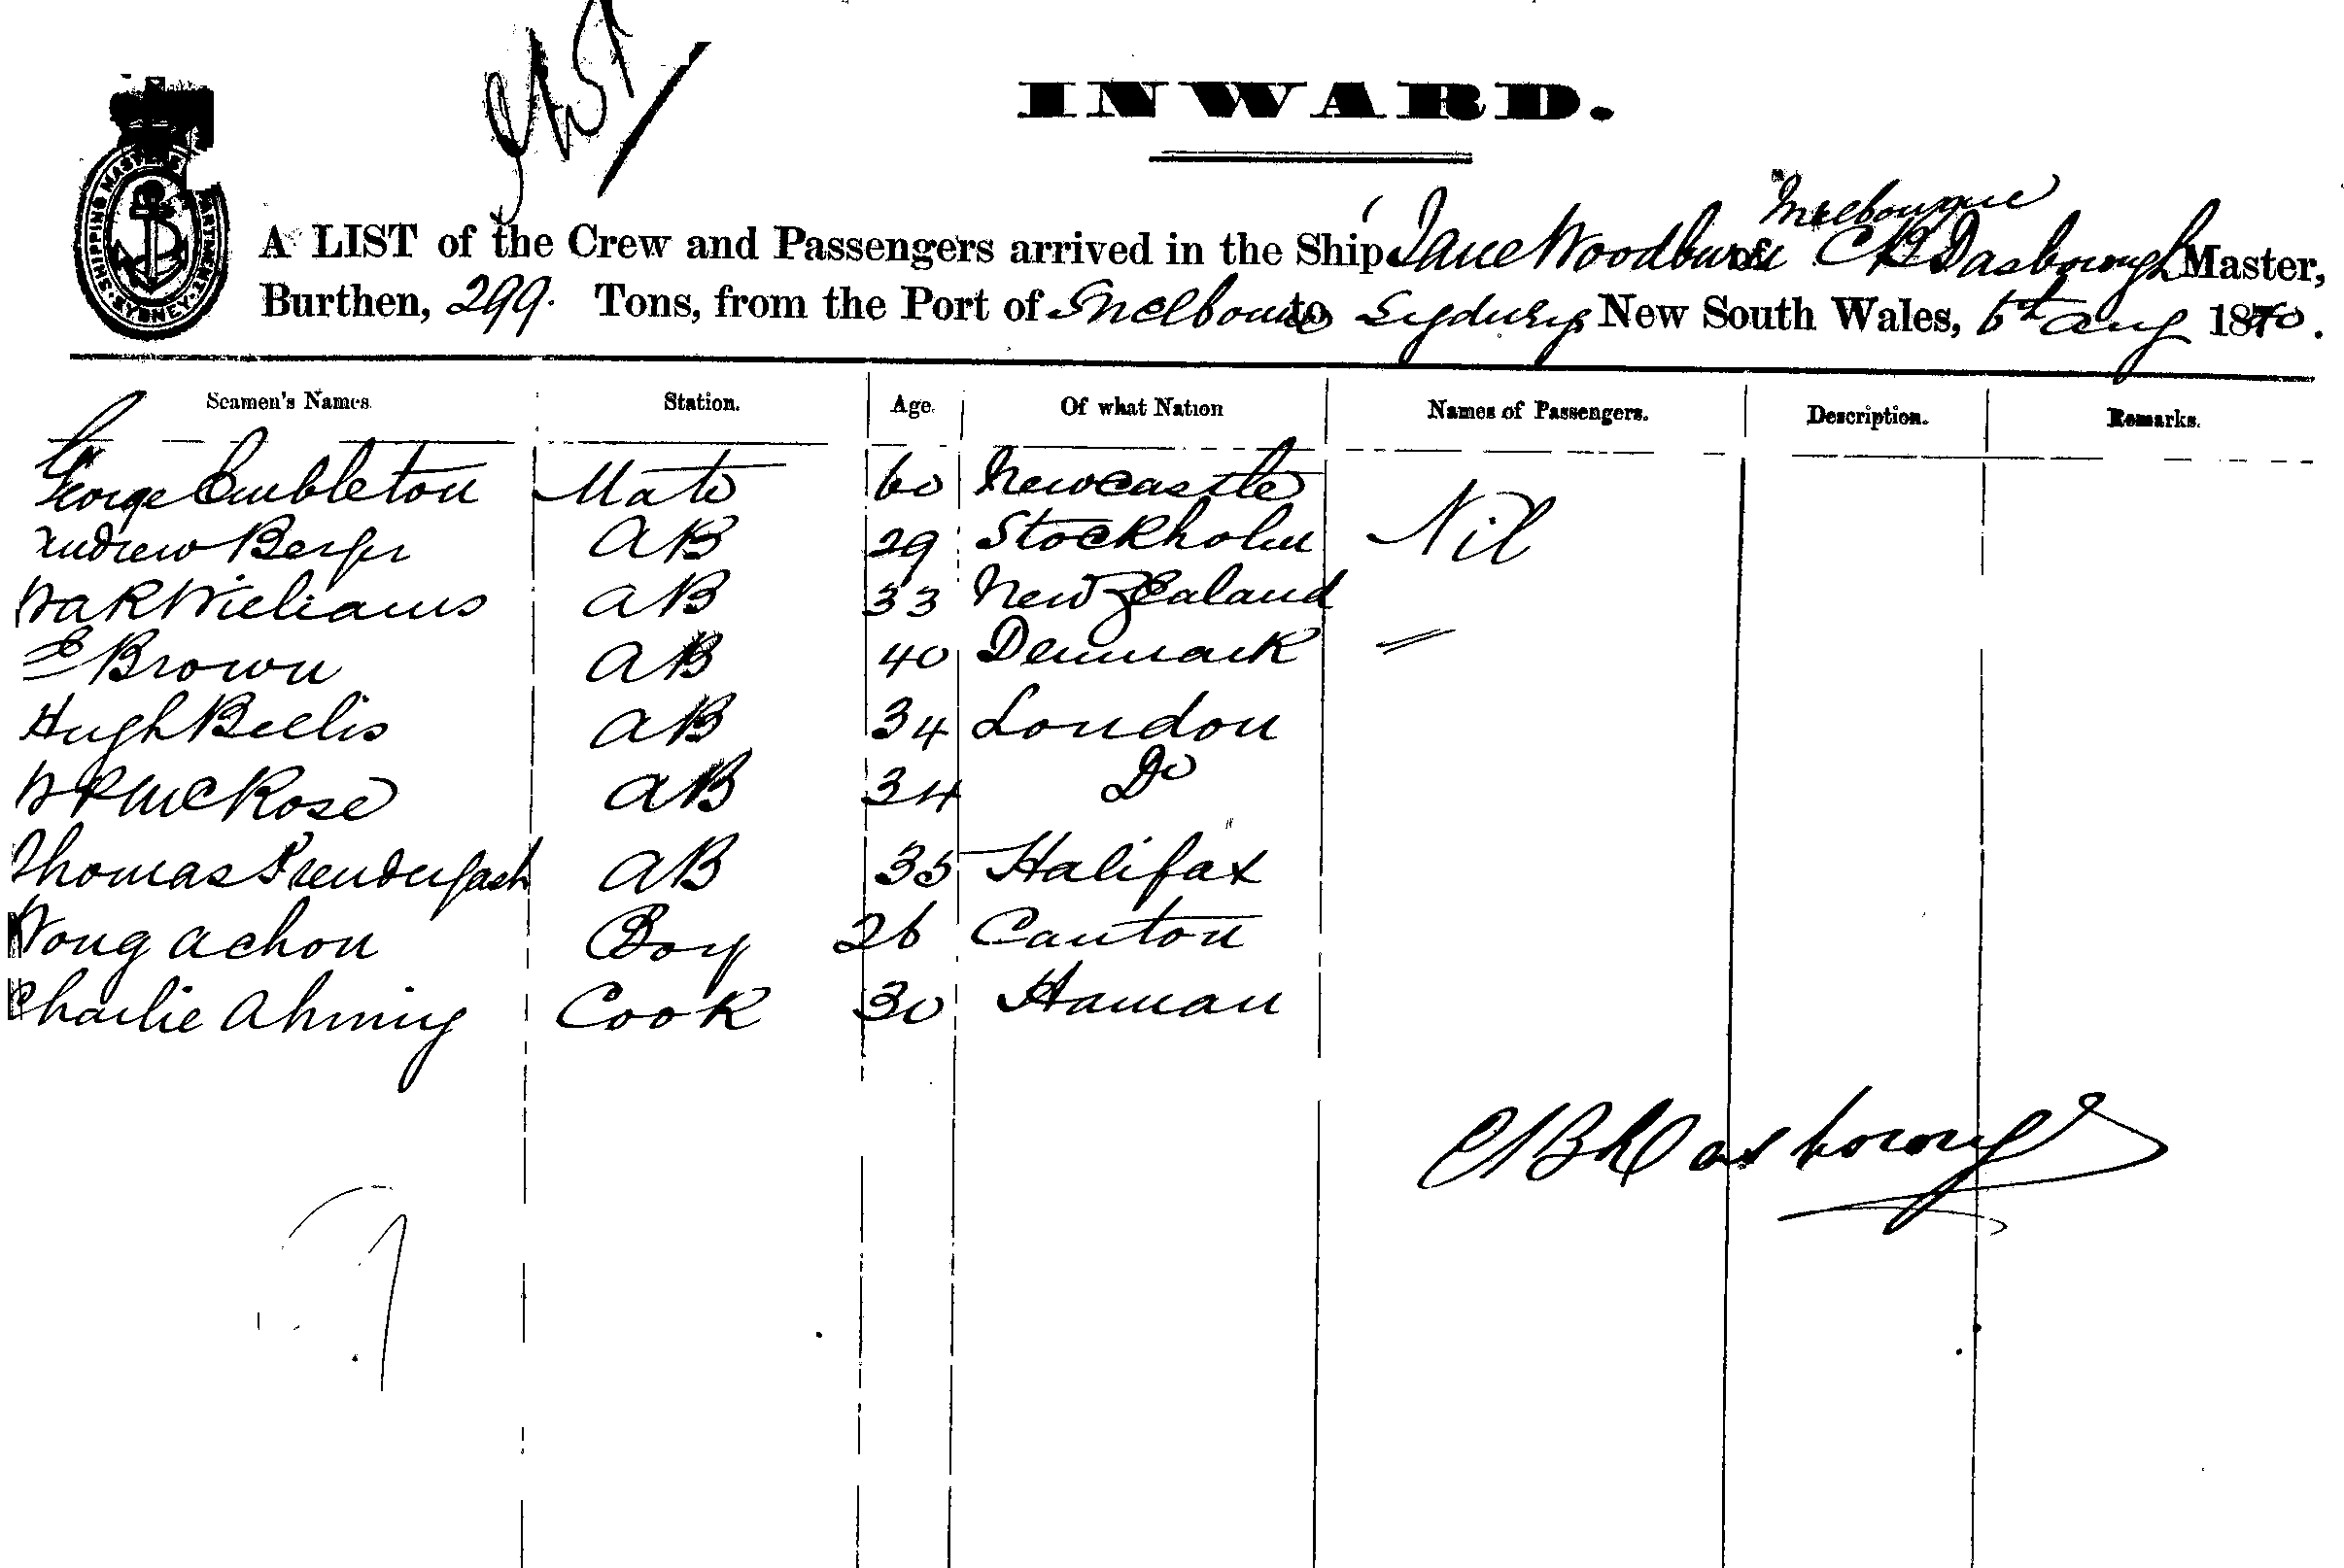 INWARD.
A LIST of the Crew and Passengers arrived in the Ship Jane Woodburn of Melbourne C B Dasborough Master,
Burthen, 299. Tons, from the Port of Melbourne to Sydney New South Wales, 6th Aug 1870.
Seamen's Names. Station. Age. Of what Nation Names of Passengers. Description. Remarks.
George Embleton Mate 60 Newcastle Nil
Andrew Berger AB 29 Stockholm
Williams AB 33 New Zealand
E Brown AB 40 Denmark
Hugh Beelis AB 34 London
McRose AB 34 Do
Thomas Prendergast AB 35 Halifax
Wong Achon Boy 26 Canton
Charlie Ahming Cook 30 Hainan
C B Dasborough